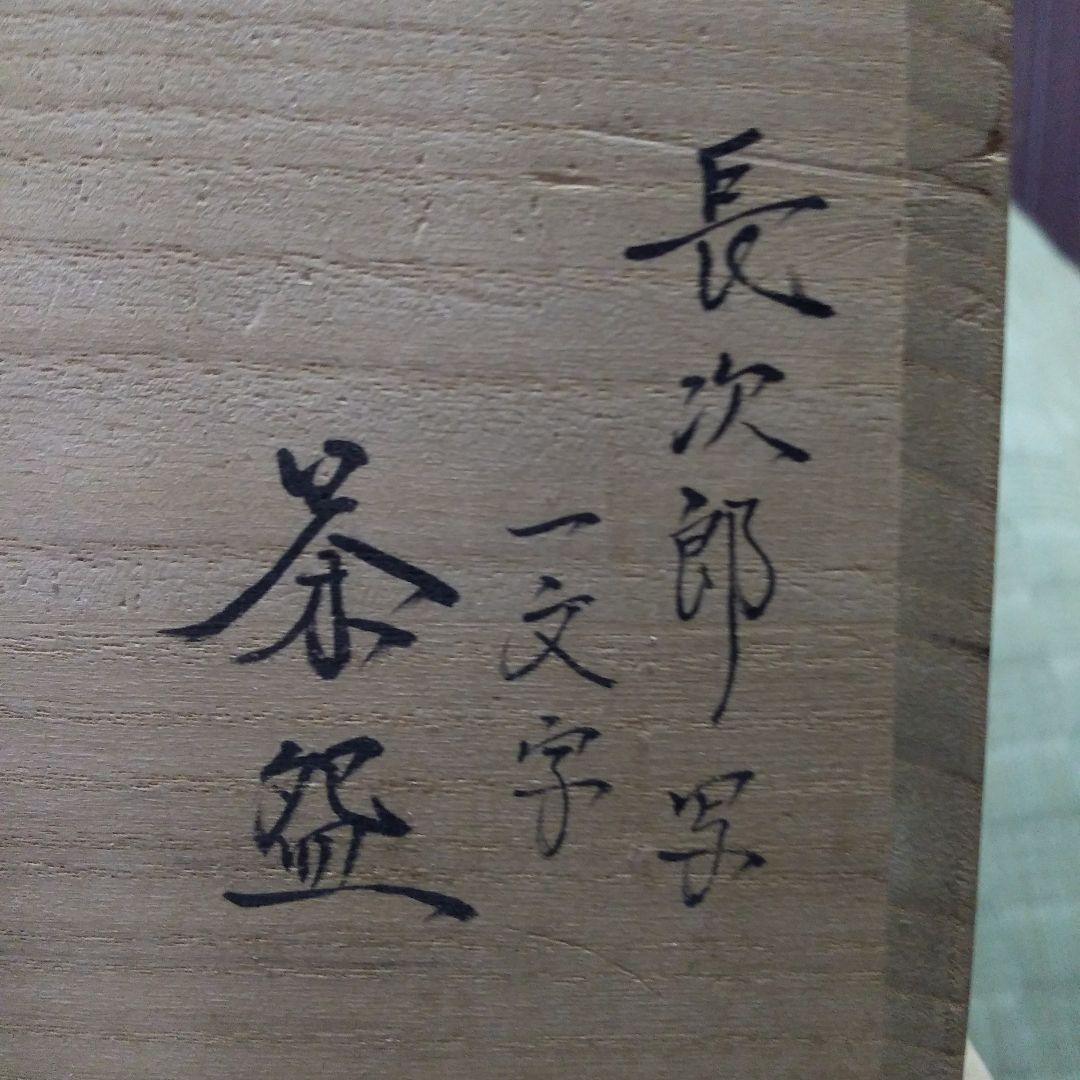 長次郎写
一文字
茶盌